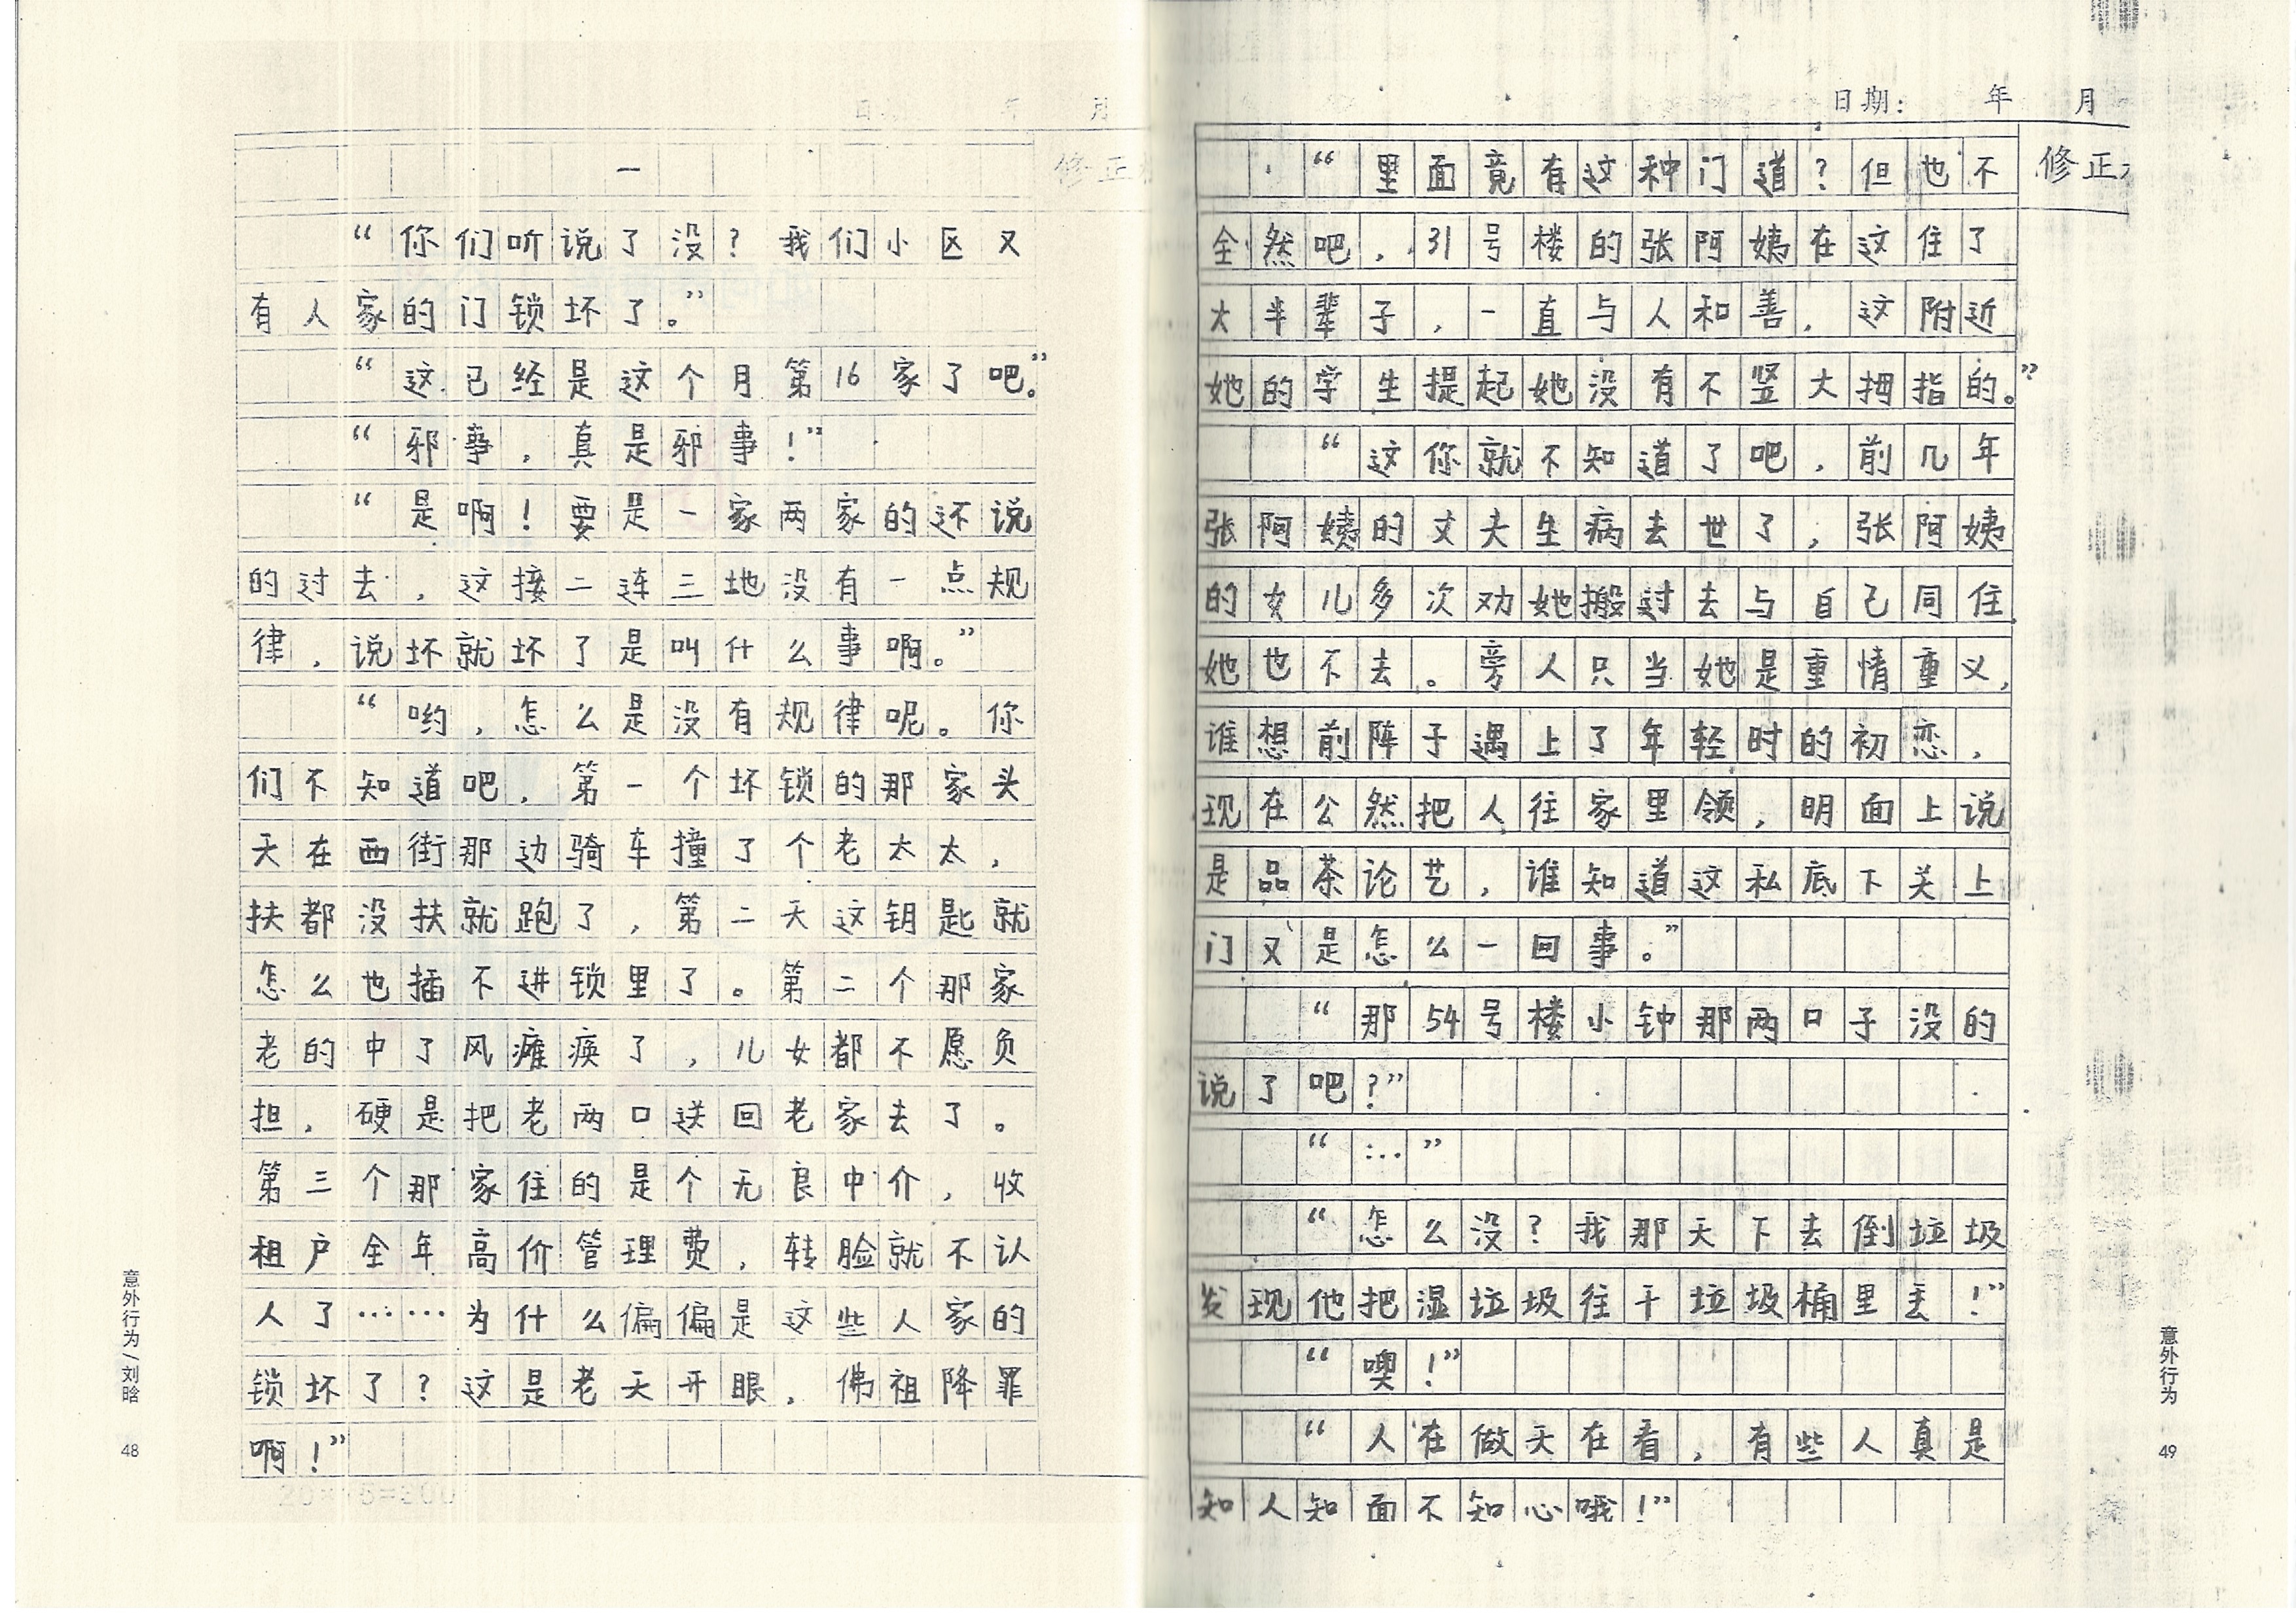 日期 年 月
修正
一
“你们听说了没？我们小区又
有人家的门锁坏了。”
“这已经是这个月第16家了吧。”
“邪事，真是邪事！”
“是啊！要是一家两家的还说
的过去，这接二连三地没有一点规
律，说坏就坏了是叫什么事啊。”
“哟，怎么是没有规律呢。你
们不知道吧，第一个坏锁的那家头
天在西街那边骑车撞了个老太太，
扶都没扶就跑了，第二天这钥匙就
怎么也插不进锁里了。第二个那家
老的中了风瘫痪了，儿女都不愿负
担，硬是把老两口送回老家去了。
第三个那家住的是个无良中介，收
租户全年高价管理费，转脸就不认
人了……为什么偏偏是这些人家的
锁坏了？这是老天开眼，佛祖降罪
啊！”
20×15=300
意外行为/刘晗 48
日期: 年 月
修正
“里面竟有这种门道？但也不
全然吧，31号楼的张阿姨在这住了
大半辈子，一直与人和善，这附近
她的学生提起她没有不竖大拇指的。”
“这你就不知道了吧，前几年
张阿姨的丈夫生病去世了，张阿姨
的女儿多次劝她搬过去与自己同住，
她也不去。旁人只当她是重情重义，
谁想前阵子遇上了年轻时的初恋，
现在公然把人往家里领，明面上说
是品茶论艺，谁知道这私底下关上
门又是怎么一回事。”
“那54号楼小钟那两口子没的
说了吧？”
“…”
“怎么没？我那天下去倒垃圾
发现他把湿垃圾往干垃圾桶里丢！”
“噢！”
“人在做天在看，有些人真是
知人知面不知心哦！”
意外行为 49